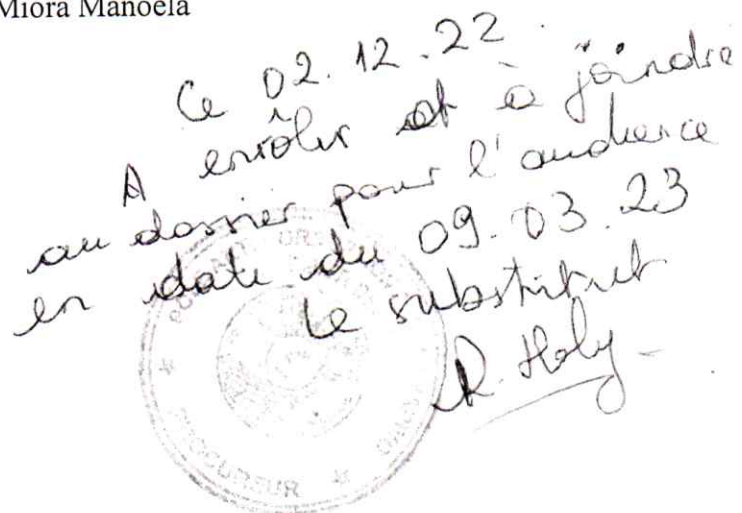 Miora Manoela
Ce 02.12.22.
A enrôler et à joindre
au dossier pour l'audience
en date du 09.03.23
Le substitut
R. Holy
PROCUREUR